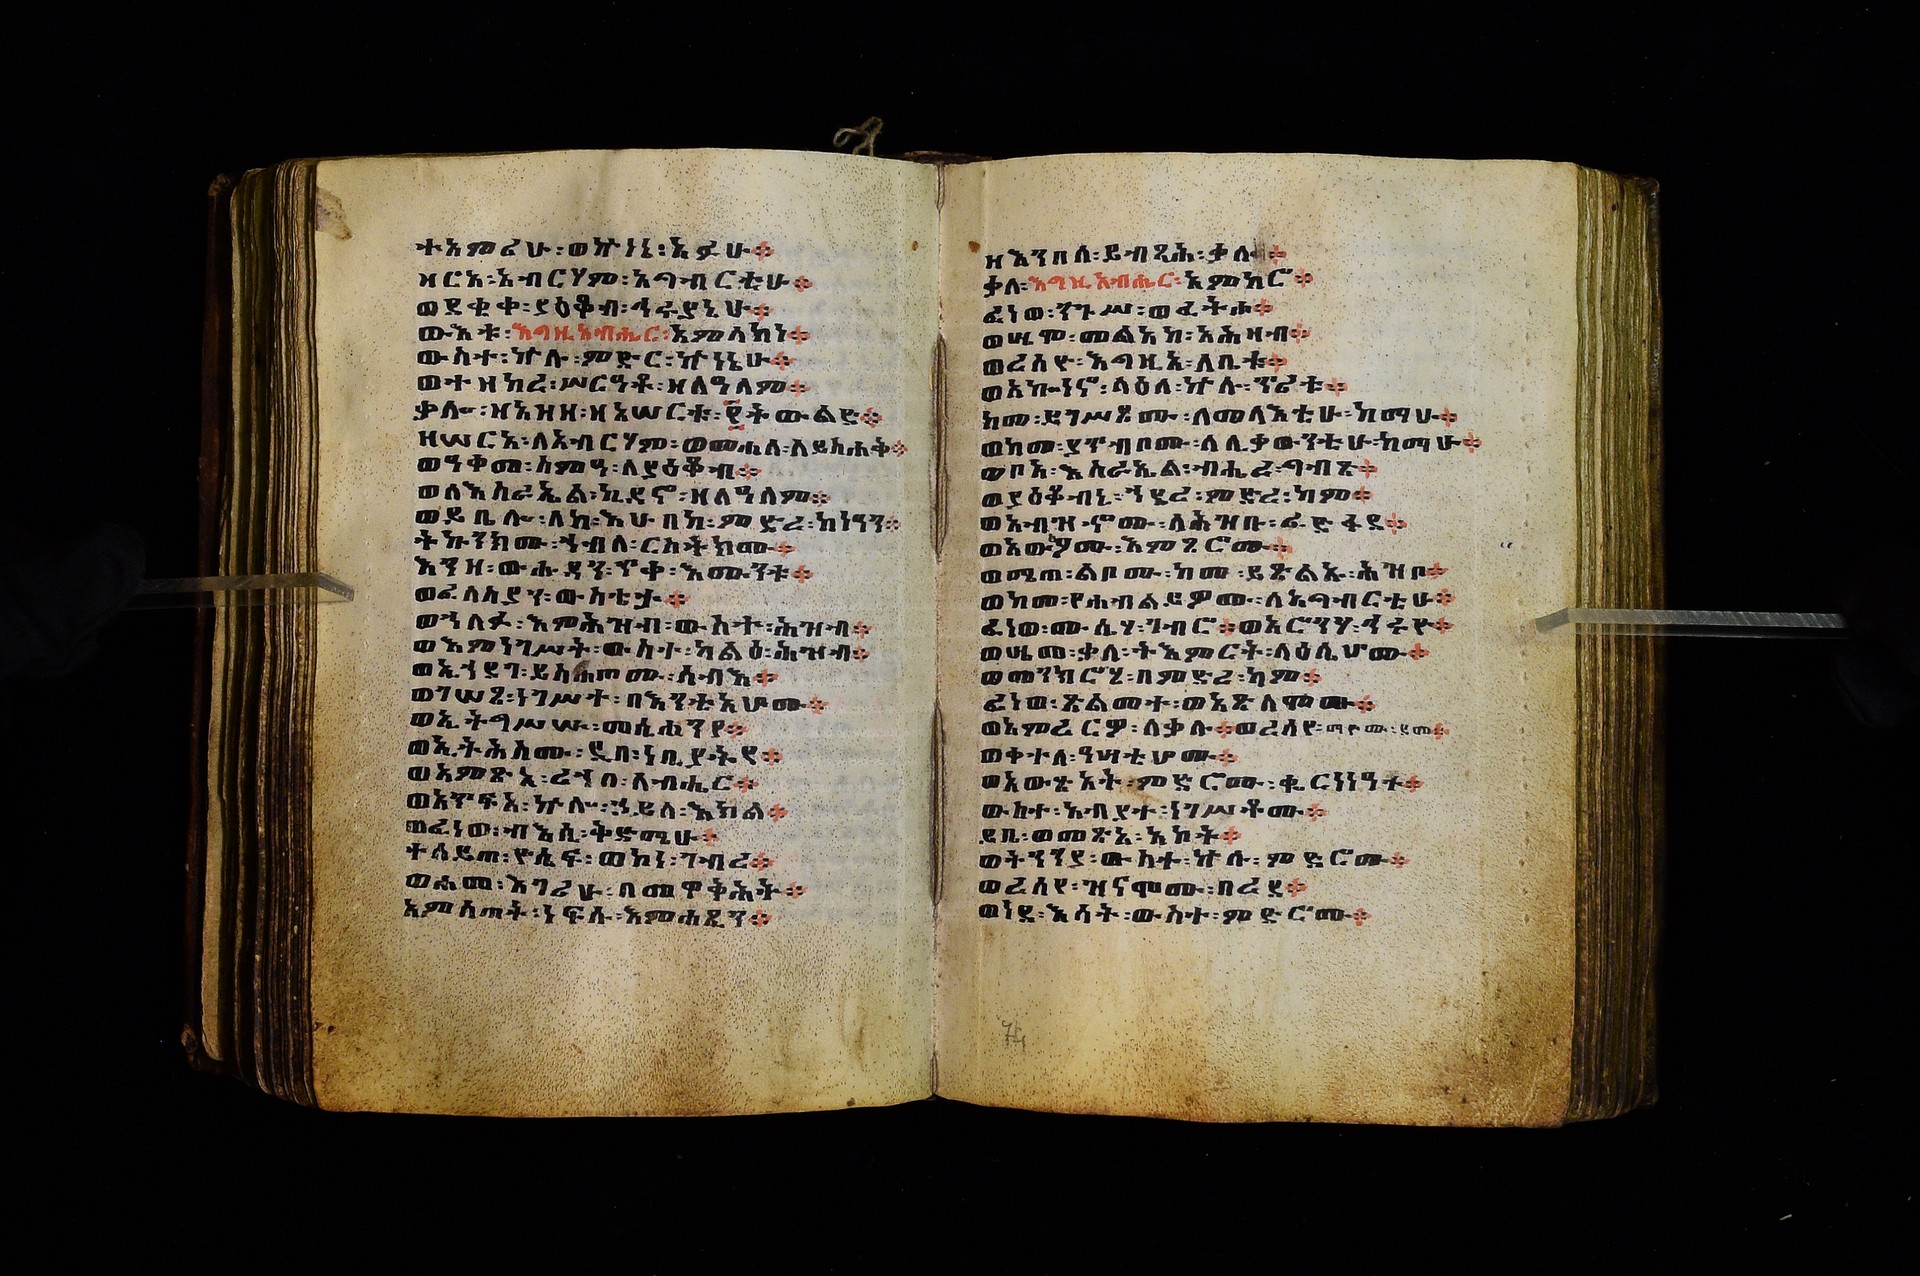 ተአምሪሁ፡ወኵነኔ፡አፉሁ።
ዘርአ፡አብርሃም፡አግብርቲሁ።
ወደቂቀ፡ያዕቆብ፡ኅሩያኒሁ።
ውእቱ፡እግዚአብሔር፡አምላክነ።
ውስተ፡ኵሉ፡ምድር፡ኵነኔሁ።
ወተዘከረ፡ሥርዓቶ፡ዘለዓለም።
ቃሎ፡ዘአዘዘ፡ዘእሠርቱ፡፻ትውልድ።
ዘሠርአ፡ለአብርሃም፡ወመሐለ፡ለይስሐቅ።
ወዓቀመ፡ስምዓ፡ለያዕቆብ።
ወለእስራኤል፡ኪዳኖ፡ዘለዓለም።
ወይቤሎ፡ለከ፡እሁበከ፡ምድረ፡ከነዓን።
ትኩንክሙ፡ኀብለ፡ርስትክሙ።
እንዘ፡ውሑዳን፡ኆቀ፡እሙንቱ።
ወፈላስያን፡ውስቴታ።
ወኀለፉ፡እምሕዝብ፡ውስተ፡ሕዝብ።
ወእምነገሥት፡ውስተ፡ካልዕ፡ሕዝብ።
ወኢኀደገ፡ይስሐጦሙ፡ሰብእ።
ወገሠጸ፡ነገሥተ፡በእንቲአሆሙ።
ወኢትግሥሡ፡መሲሐንየ።
ወኢትሕስሙ፡ዲበ፡ነቢያትየ።
ወአምጽአ፡ረኀበ፡ለብሔር።
ወአኅፍአ፡ኵሎ፡ኃይለ፡እክል።
ወፈነወ፡ብእሴ፡ቅድሜሁ።
ተሰይጠ፡ዮሴፍ፡ወኮነ፡ገብረ።
ወሐመ፡እገሪሁ፡በመዋቅሕት።
አምሰጠት፡ነፍሱ፡እምሐፂን።
ዘእንበለ፡ይብጻሕ፡ቃሉ።
ቃለ፡እግዚአብሔር፡አምከሮ።
ፈነወ፡ንጉሥ፡ወፈትሖ።
ወሤሞ፡መልአከ፡አሕዛብ።
ወረሰዮ፡እግዚአ፡ለቤቱ።
ወአኰነኖ፡ላዕለ፡ኵሉ፡ንዋቱ።
ከመ፡ይገሥጾሙ፡ለመላእቲሁ፡ከማሁ።
ወከመ፡ያጥብቦሙ፡ለሊቃውንቲሁ፡ከማሁ።
ወቦአ፡እስራኤል፡ብሔረ፡ግብጽ።
ወያዕቆብኒ፡ኀደረ፡ምድረ፡ካም።
ወአብዝኖሙ፡ለሕዝቡ፡ፈድፋደ።
ወአውፃሙ፡እምፀሮሙ።
ወሜጠ፡ልቦሙ፡ከመ፡ይጽልኡ፡ሕዝቦ።
ወከመ፡የሐብልይዎሙ፡ለአግብርቲሁ።
ፈነወ፡ሙሴሃ፡ገብሮ።ወአሮንሃ፡ኅሩዮ።
ወሤመ፡ቃለ፡ትእምርት፡ላዕሌሆሙ።
ወመንክሮሂ፡በምድረ፡ካም።
ፈነወ፡ጽልመተ፡ወአጽለሞሙ።
ወአምረርዎ፡ለቃሉ።ወረሰየ፡ማዮሙ፡ደመ።
ወቀተለ፡ዓሣቲሆሙ።
ወአውፅአት፡ምድሮሙ፡ቈርነነዓተ።
ውስተ፡አብያተ፡ነገሥቶሙ።
ይቤ፡ወመጽአ፡አኮት።
ወትንንያ፡ውስተ፡ኵሉ፡ምድሮሙ።
ወረሰየ፡ዝናሞሙ፡በረደ።
ወነደ፡እሳት፡ውስተ፡ምድሮሙ።
74